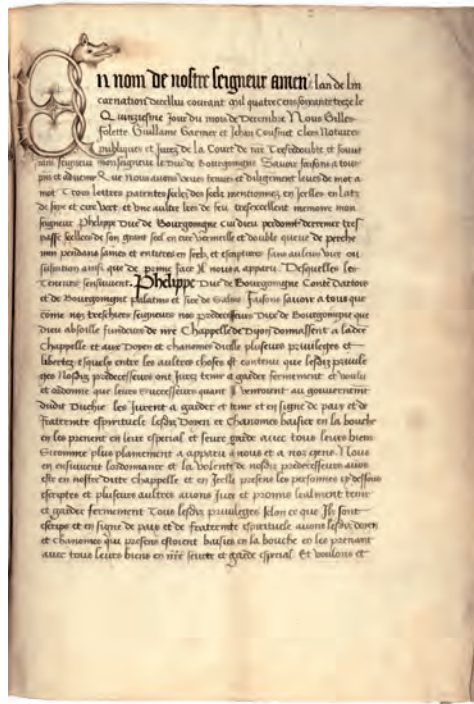 En nom de nostre seigneur amen. lan de lin
carnation dicellui courant mil quatre cens soixante treze le
Quinziesme Jour du mois de Decembre Nous Gilles
folette Guillame Garnier et Jehan Cousinet clers Notaires
publiques et Jurez de la Court de mon Tresredoubte et souverain
seigneur monseigneur le Duc de Bourgoingne Savoir faisons a tous
que Nous avons veues tenues et diligemment leues de mot a
mot Trois lettres patentes seelees des seelz mentionnez en Jcelles en latz
de soye et cire vert et Une aultre lres de feu tresexcellent memoire mon
seigneur Phelippe Duc de Bourgoingne Cui dieu perdoint derrenier tres
passe seellees de son grant seel en cire vermeille et double queue de perche
min pendans saines et entieres en seelz et escriptures sans aulcun vice ou
suspition ainsi que de prime face Il nous a apparu Desquelles les
teneurs sensuivent. Phelippe Duc de Bourgoingne Conte Dartois
et de Bourgoingne palatin et sire de Salins Faisons savoir a tous que
come noz treschiers seigneurs noz predecesseurs Ducs de Bourgoingne que
dieu absoille fundeurs de nre Chappelle de Dijon donnassent a ladite
Chappelle et aux Doyen et chanoines dicelle plusieurs privileges et
libertez esquelx entre les aultres choses est contenu que lesdiz privile
ges Nosdiz predecesseurs ont Jurez tenir a garder fermement et voulu
et ordonne que leurs Successeurs quant Il venroient au gouvernemt
dudit Duchie les Jurent a garder et tenir et en signe de paix et de
fraternite espirituele lesdiz Doyen et Chanoines baisier en la bouche
en les prenent en leur especial et seure garde avec tous leurs biens
Sicomme plus plainement a apparu a nous et a noz gens. Nous
en ensuivent lordonnance et la volente de nosdiz predecesseurs avons
este en nostredicte chappelle et en Jcelle presens les personnes cy dessoubz
escriptes et plusieurs aultres avons Jure et promis lealment tenir
et garder fermement Tous lesdiz privileges selon ce que Jlz sont
escrips et en signe de paix et de fraternite espirituele avons lesdiz doyen
et chanoines qui presens estoient baisies en la bouche en les prenant
avec tous leurs biens en nre seurte et garde especial Et voulons et